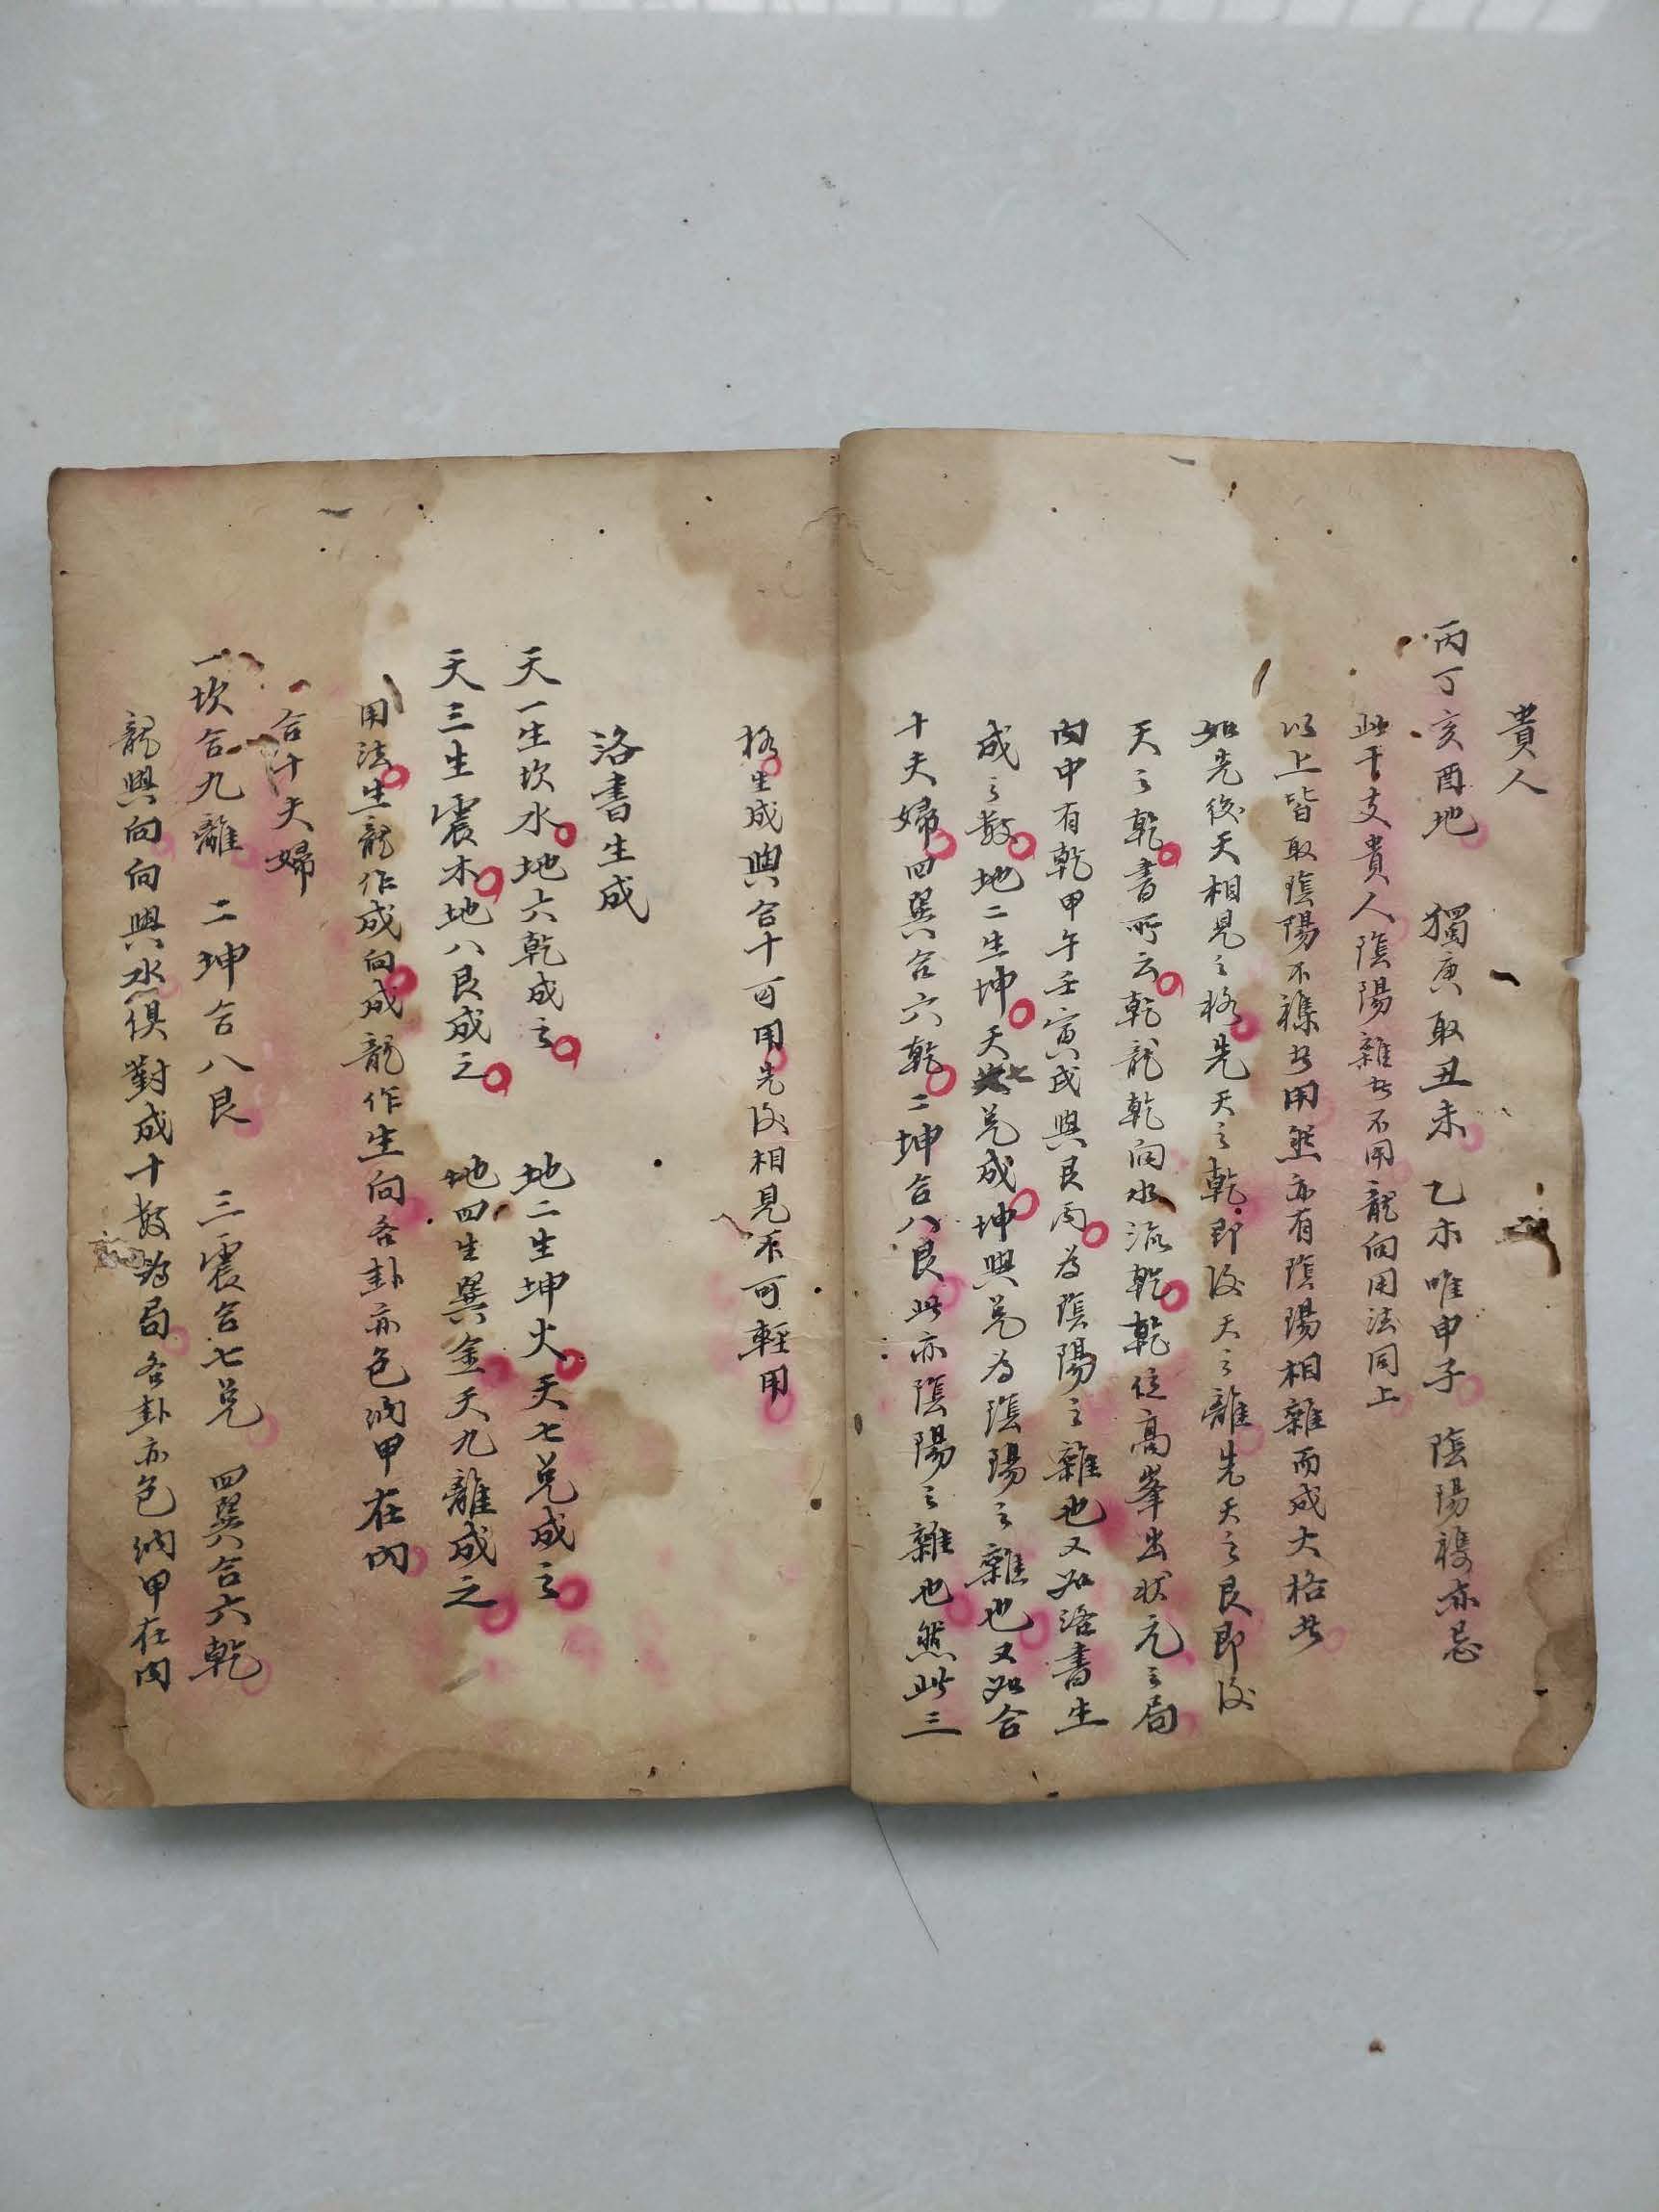 貴人
丙丁亥酉地 獨庚取丑未 乙木唯申子 陰陽襍亦忌
此干支貴人陰陽雜者不用龍向用法同上
以上皆取陰陽不襍者用然亦有陰陽相雜而成大格者
如先後天相見之格先天之乾即後天之離先天之艮即後
天之乾書所云乾龍乾向水流乾乾位高峯出狀元之局
內中有乾甲午壬寅戌與艮丙為陰陽之雜也又如洛書生
成之數地二生坤天七兌成坤與兌為陰陽之雜也又如合
十夫婦四巽合六乾二坤合八艮此亦陰陽之雜也然此三
格生成與合十可用先後相見不可輕用
洛書生成
天一生坎水地六乾成之 地二生坤火天七兌成之
天三生震木地八艮成之 地四生巽金天九離成之
用法生龍作成向成龍作生向各卦亦包納甲在內
合十夫婦
一坎合九離 二坤合八艮 三震合七兌 四巽合六乾
龍與向向與水俱對成十數為局各卦亦包納甲在內